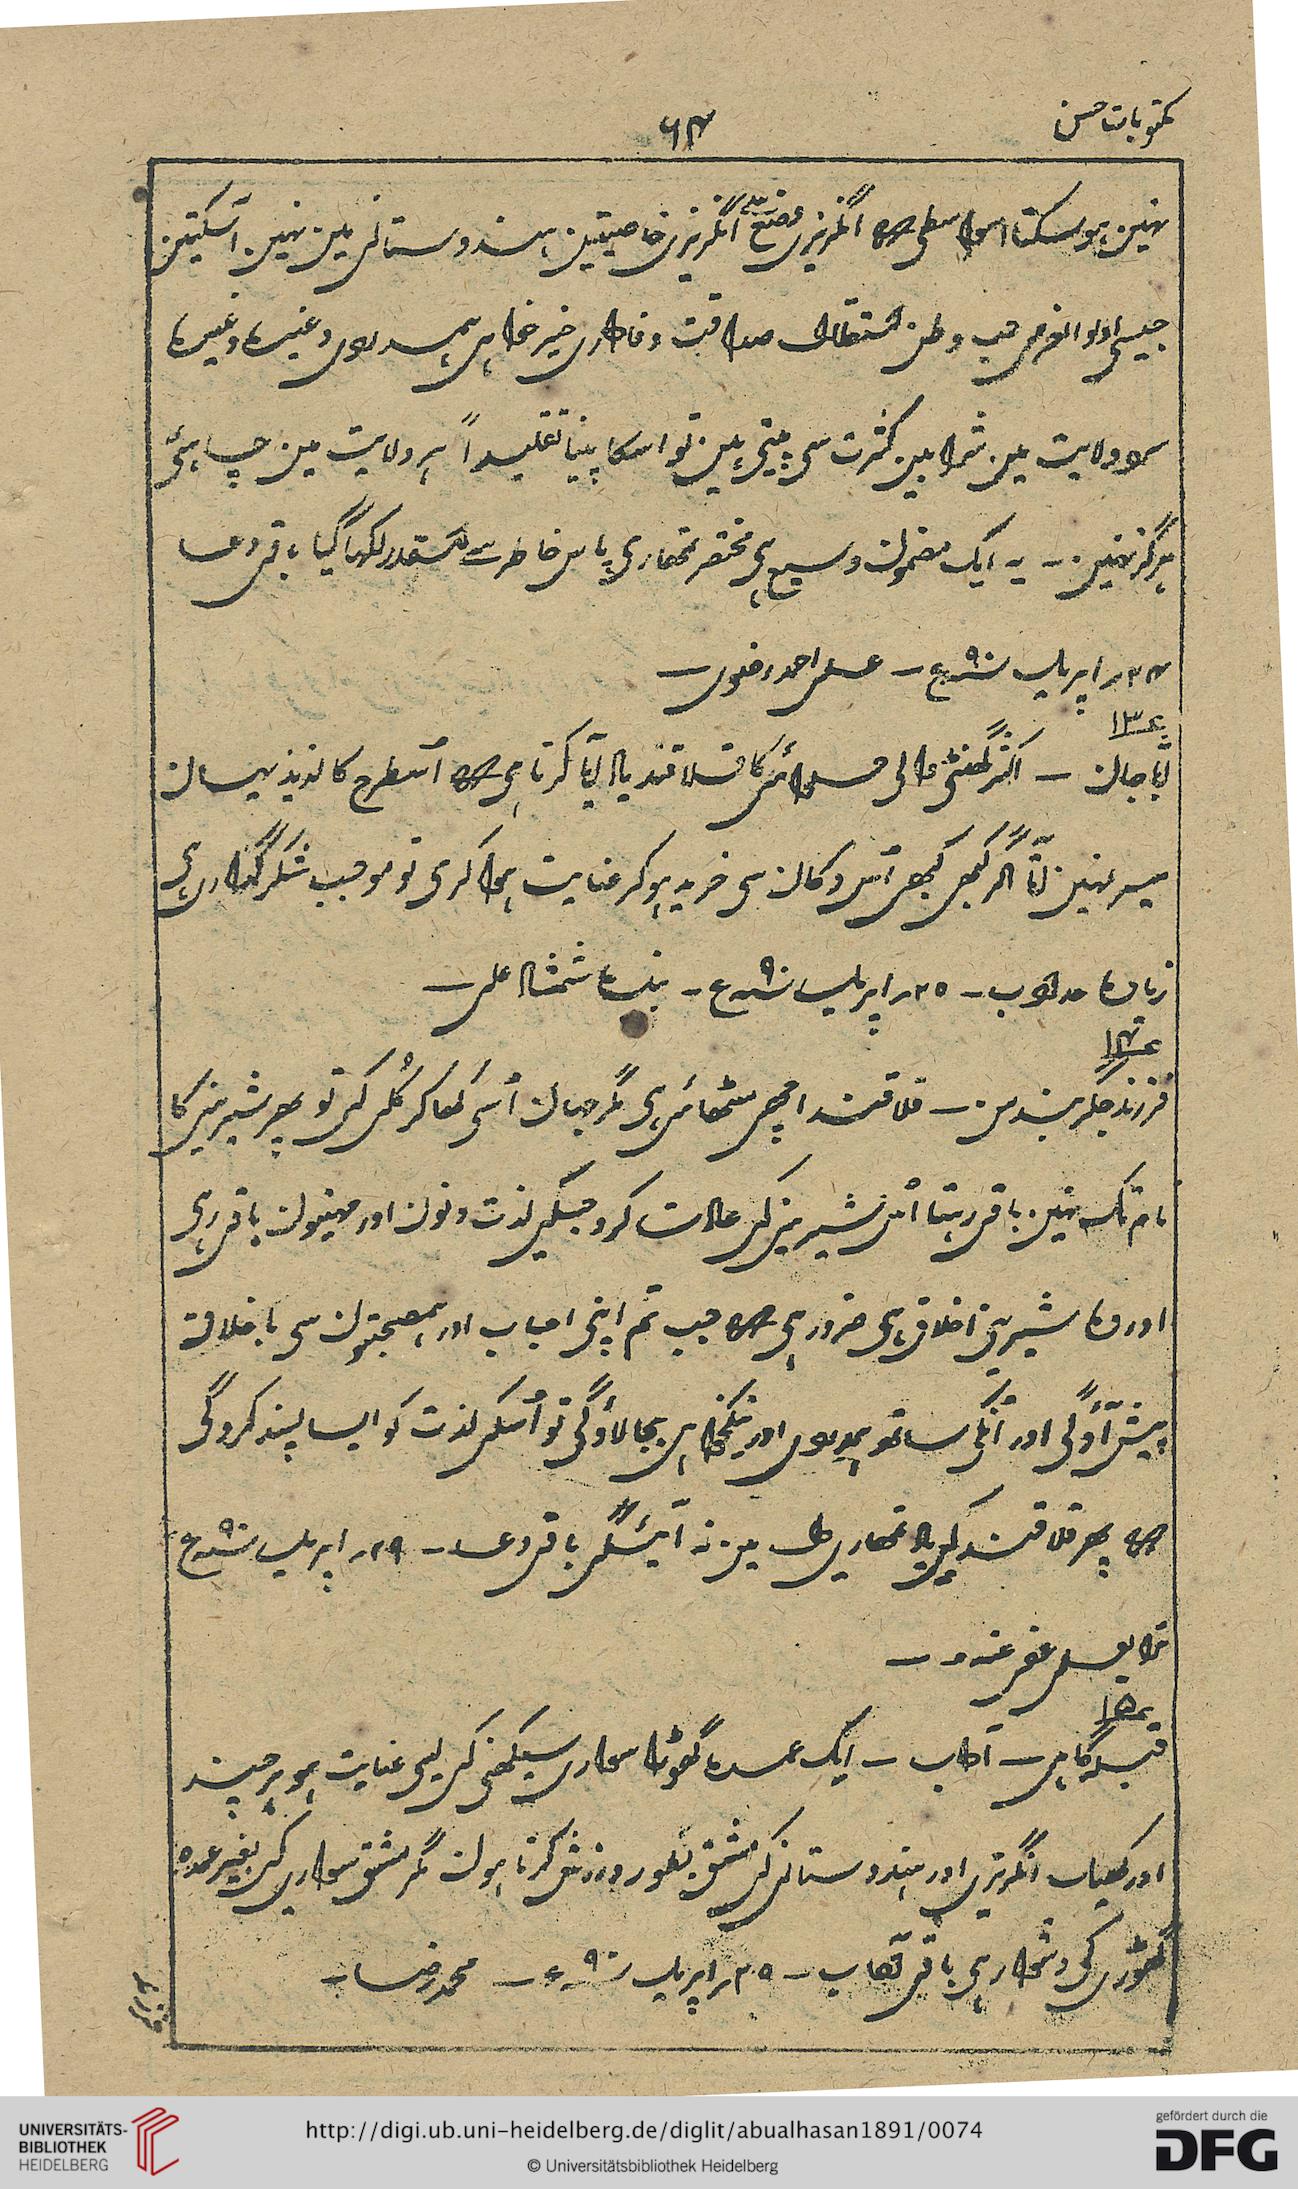 مکتوبات حسن
۶۴
نہین ہوسکتا اسواسطی کہ انگریزی وضع سے انگریزی خاصیتین ہندوستانی مین نہین آسکتین
جیسی اولوالعزمی حب وطن استقلال صداقت وفاداری خیرخواہی ہمدردی وغیرہ وغیرہ
ولایت مین شرابین کثرت سی پیتی ہین تو اسکا پینا تقلیداً ہر ولایت مین چاہئی
ہرگز نہین ۔ یہ ایک مضمون وسیع ہی مختصر تمھاری پاس خاطر سے اسقدر لکھا گیا باقی دعا
۲۴ر اپریل سنہ ۹۰ ع ۔ علی احمد رضوی ۔
ع۱۳
ابا جان ۔ اکثر گھنٹی والی حلوائی کا قلاقند یاد آیا کرتا ہی کہ اسطرح کا لذیذ یہان
میسر نہین آتا اگر کبھی کبھی اس دکان سی خرید ہوکر عنایت ہوا کری تو موجب شکرگذاری ہی
زیادہ حد ادب ۔ ۲۵ر اپریل سنہ ۹۰ ع ۔ بندہ شمشاد علی ۔
ع۱۴
فرزند جگربند من ۔ قلاقند اچھی مٹھائی ہی مگر جہان اسی کھاکر کلی کی تو پھر شیرینی کا
نام تک نہین باقی رہتا اس شیرینی کی عادت کرو جسکی لذت دنون اور مہینون باقی رہی
اور وہ شیرینی اخلاق ہی ضرور ہی کہ جب تم اپنی احباب اور ہمصحبتون سی باخلاق
پیش آؤگی اور انکی ساتھ ہمدردی اور نیکخواہی بجالاؤگی تو اسکی لذت کو ایسا پسند کروگی
کہ پھر قلاقند کی یاد تمھاری دل مین نہ آئیگی باقی دعا ۔ ۲۹ر اپریل سنہ ۹۰ ع
تراب علی عفی عنہ ۔
ع۱۵
قبلہ گاہی ۔ آداب ۔ ایک عمدہ گھوڑا سواری سیکھنی کی لیی عنایت ہو ہرچند
اور کھیل انگریزی اور ہندوستانی کی مشق بطور ورزش کرتا ہون مگر مشق سواری کی بغیر عمدہ
گھوڑی کی دشوار ہی باقی آداب ۔ ۲۵ر اپریل سنہ ۹۰ ع ۔ محمد رضا ۔
UNIVERSITÄTS-
BIBLIOTHEK
HEIDELBERG
http://digi.ub.uni-heidelberg.de/diglit/abualhasan1891/0074
© Universitätsbibliothek Heidelberg
gefördert durch die
DFG